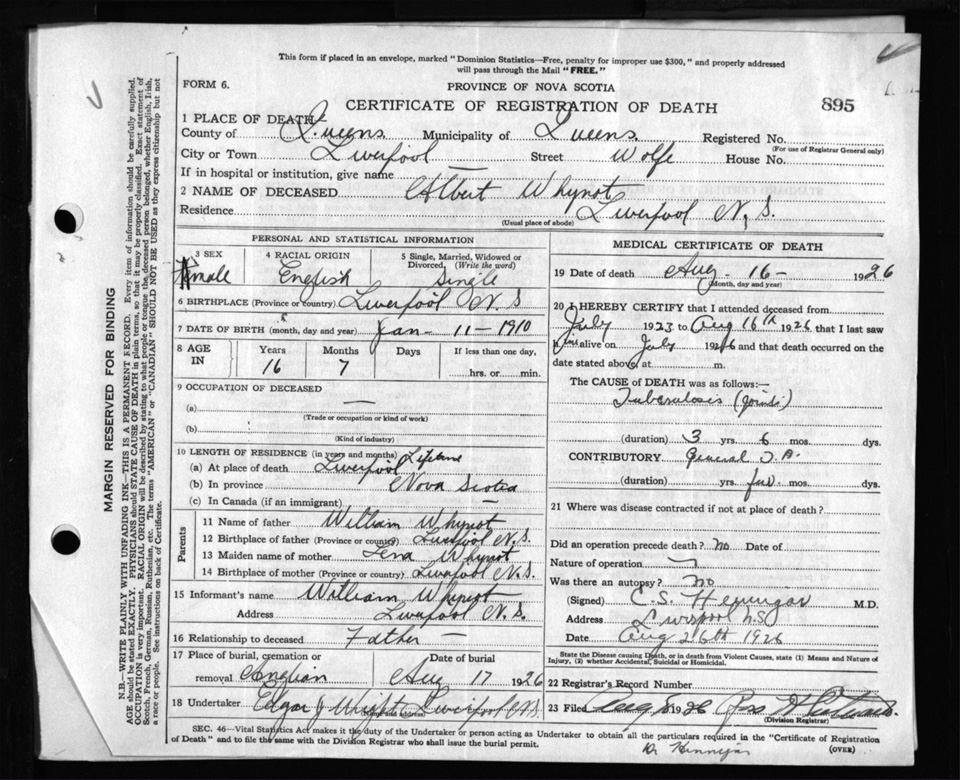 This form if placed in an envelope, marked "Dominion Statistics—Free, penalty for improper use $300," and properly addressed
will pass through the Mail "FREE."
FORM 6.
PROVINCE OF NOVA SCOTIA
CERTIFICATE OF REGISTRATION OF DEATH
895
1 PLACE OF DEATH
County of Queens Municipality of Queens Registered No.
(For use of Registrar General only)
City or Town Liverpool Street Wolfe House No.
If in hospital or institution, give name —
2 NAME OF DECEASED Albert Whynot
Residence Liverpool N.S.
(Usual place of abode)
PERSONAL AND STATISTICAL INFORMATION
3 SEX
male
4 RACIAL ORIGIN
English
5 Single, Married, Widowed or
Divorced, (Write the word)
Single
6 BIRTHPLACE (Province or country) Liverpool N.S
7 DATE OF BIRTH (month, day and year) Jan - 11 - 1910
8 AGE
IN
Years
16
Months
7
Days
If less than one day,
hrs. or min.
9 OCCUPATION OF DECEASED
(a) —
(Trade or occupation or kind of work)
(b)
(Kind of industry)
10 LENGTH OF RESIDENCE (in years and months) Lifetime
(a) At place of death Liverpool
(b) In province Nova Scotia
(c) In Canada (if an immigrant) —
Parents
11 Name of father William Whynot
12 Birthplace of father (Province or country) Liverpool N.S.
13 Maiden name of mother Lena Whynot
14 Birthplace of mother (Province or country) Liverpool N.S.
15 Informant's name William Whynot
Address Liverpool N.S.
16 Relationship to deceased Father —
17 Place of burial, cremation or
removal
Date of burial
Aug 17 1926
18 Undertaker Edgar J Wright Liverpool N.S
MEDICAL CERTIFICATE OF DEATH
19 Date of death Aug - 16 - 1926
(Month, day and year)
20 I HEREBY CERTIFY that I attended deceased from
July 1923 to Aug 16th 1926, that I last saw
him alive on July 1926 and that death occurred on the
date stated above, at m.
The CAUSE of DEATH was as follows:—
Tuberculosis (joints)
(duration) 3 yrs. 6 mos. dys.
CONTRIBUTORY General T.B.
(duration) yrs. few mos. dys.
21 Where was disease contracted if not at place of death?
Did an operation precede death? no Date of
Nature of operation
Was there an autopsy? no
(Signed) C.S. Hennigar M.D.
Address Liverpool N.S
Date Aug 26th 1926
State the Disease causing Death, or in death from Violent Causes, state (1) Means and Nature of
Injury, (2) whether Accidental, Suicidal or Homicidal.
22 Registrar's Record Number
23 Filed Aug 1926
(Division Registrar)
SEC. 46—Vital Statistics Act makes it the duty of the Undertaker or person acting as Undertaker to obtain all the particulars required in the "Certificate of Registration
of Death" and to file the same with the Division Registrar who shall issue the burial permit.
(OVER)
Dr Hennigar
MARGIN RESERVED FOR BINDING
N.B.—WRITE PLAINLY WITH UNFADING INK—THIS IS A PERMANENT RECORD. Every item of information should be carefully supplied.
AGE should be stated EXACTLY. PHYSICIANS should STATE CAUSE OF DEATH in plain terms, so that it may be properly classified. Exact statement of
OCCUPATION is very important. RACIAL ORIGIN will be described by stating to what people or tongue the deceased person belonged, whether English, Irish,
Scotch, French, German, Russian, Ruthenian, etc. The terms "AMERICAN" or "CANADIAN" SHOULD NOT BE USED as they express citizenship but not
a race or people. See instructions on back of Certificate.